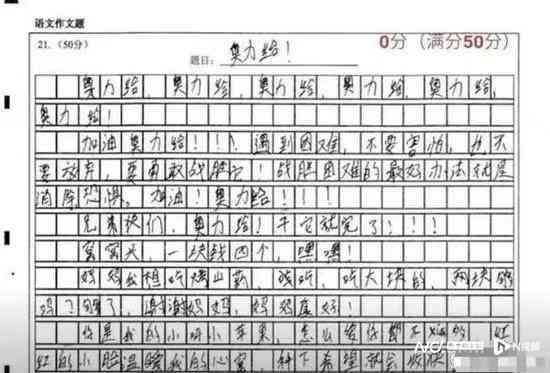 语文作文题
21.（50分）
0分（满分50分）
题目：奥力给！
奥力给，奥力给，奥力给，奥力给，奥力给，
奥力给！
加油奥力给！！！遇到困难，不要害怕，也不
要放弃，要勇敢战胜它！战胜困难的最好办法就是
消除恐惧，加油！奥力给！！！！
兄弟们，奥力给！干它就完了！！！
窝窝头，一块钱四个，嘿嘿！
妈妈我想吃烤山药，戏吃，吃大块的，两块够
吗？够了，谢谢妈妈，妈妈真好！
你是我的小呀小苹果，怎么爱你都不嫌多，红
红的小脸温暖我的心窝，种下希望就会收获
N视频